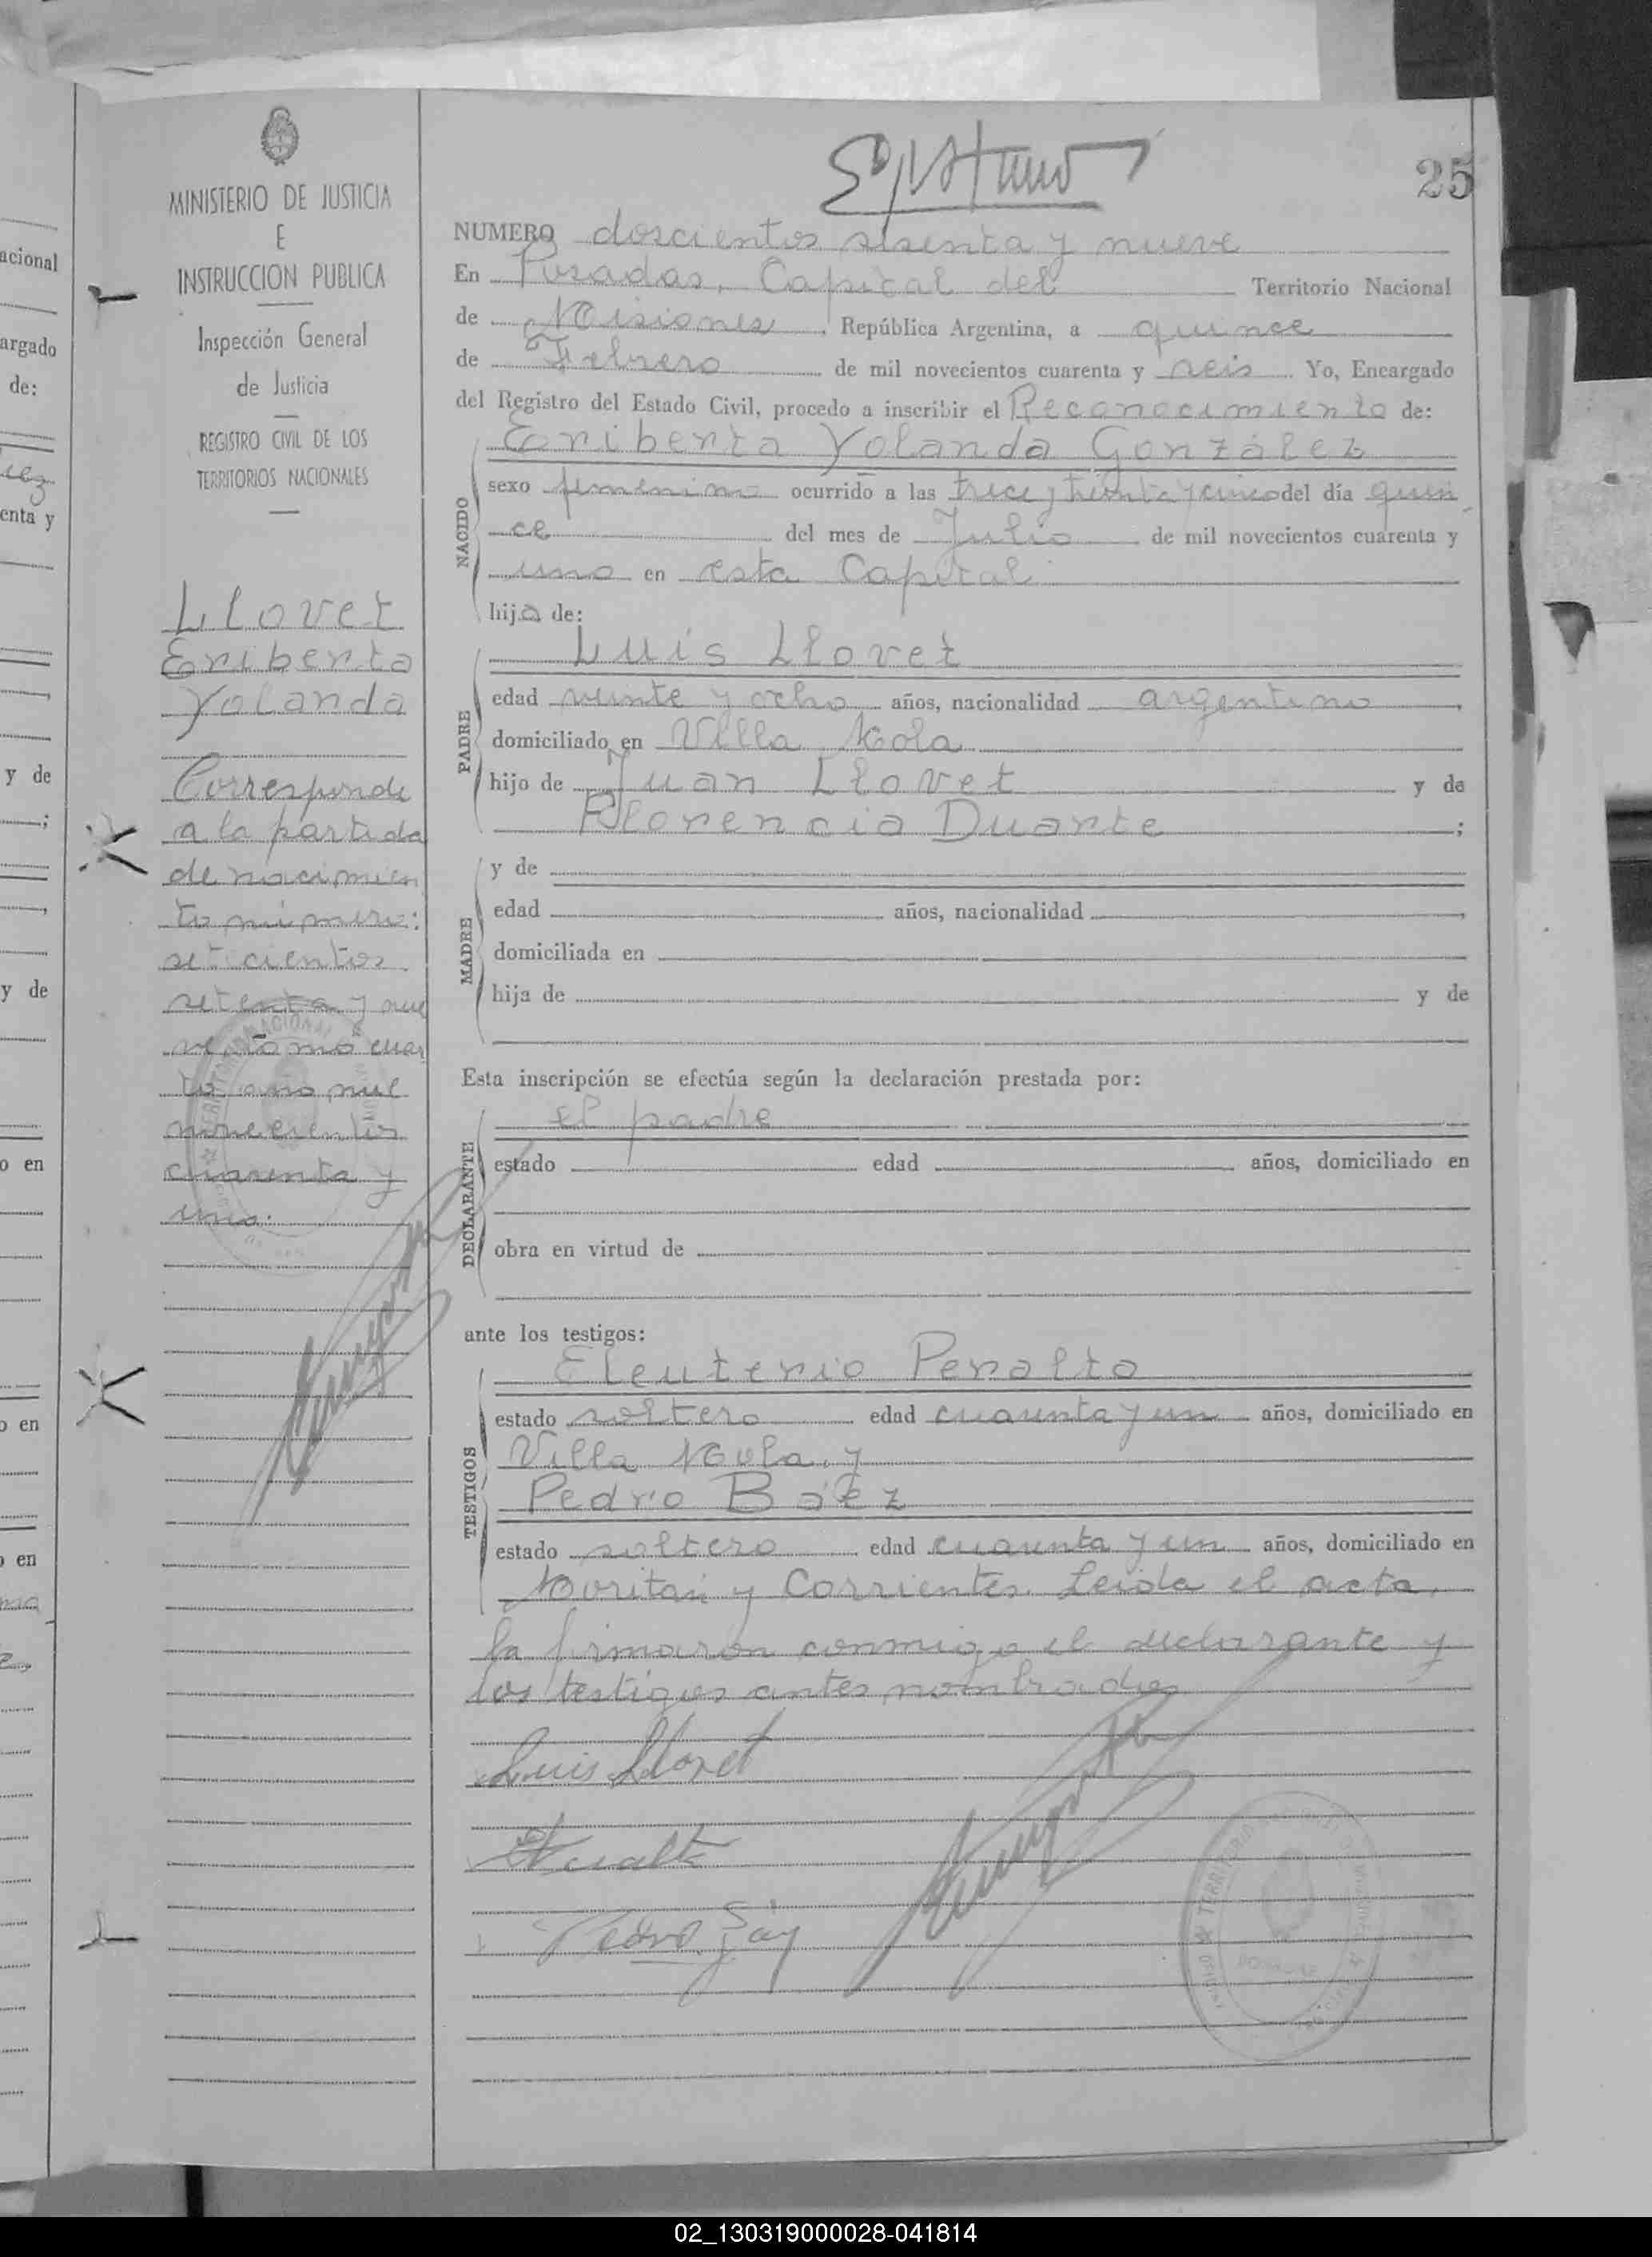 25
MINISTERIO DE JUSTICIA
E
INSTRUCCION PUBLICA
Inspección General
de Justicia
REGISTRO CIVIL DE LOS
TERRITORIOS NACIONALES
Llovet
Eriberta
Yolanda
Corresponde
a la partida
de nacimien
to número:
setecientos
setenta y nue
ve tomo cuar
to año mil
novecientos
cuarenta y
uno.
NUMERO doscientos sesenta y nueve
En Posadas, Capital del Territorio Nacional
de Misiones, República Argentina, a quince
de Febrero de mil novecientos cuarenta y seis Yo, Encargado
del Registro del Estado Civil, procedo a inscribir el Reconocimiento de:
Eriberta Yolanda González
NACIDO
sexo femenino ocurrido a las trece y treinta y cinco del día quin
ce del mes de Julio de mil novecientos cuarenta y
uno en esta Capital
hija de:
Luis Llovet
PADRE
edad veinte y ocho años, nacionalidad argentino
domiciliado en Villa Mola
hijo de Juan Llovet y de
Florencia Duarte ;
MADRE
y de
edad años, nacionalidad
domiciliada en
hija de y de
Esta inscripción se efectúa según la declaración prestada por:
El padre
DECLARANTE
estado edad años, domiciliado en
obra en virtud de
ante los testigos:
Eleuterio Peralta
TESTIGOS
estado soltero edad cuarenta y un años, domiciliado en
Villa Mola, y
Pedro Báez
estado soltero edad cuarenta y un años, domiciliado en
Moritán y Corrientes. Leida el acta,
la firmaron conmigo el declarante y
los testigos antes nombrados
Luis Llovet
EPeralta
Pedro
acional
argado
de:
enta y
y de
y de
o en
o en
o en
02_130319000028-041814